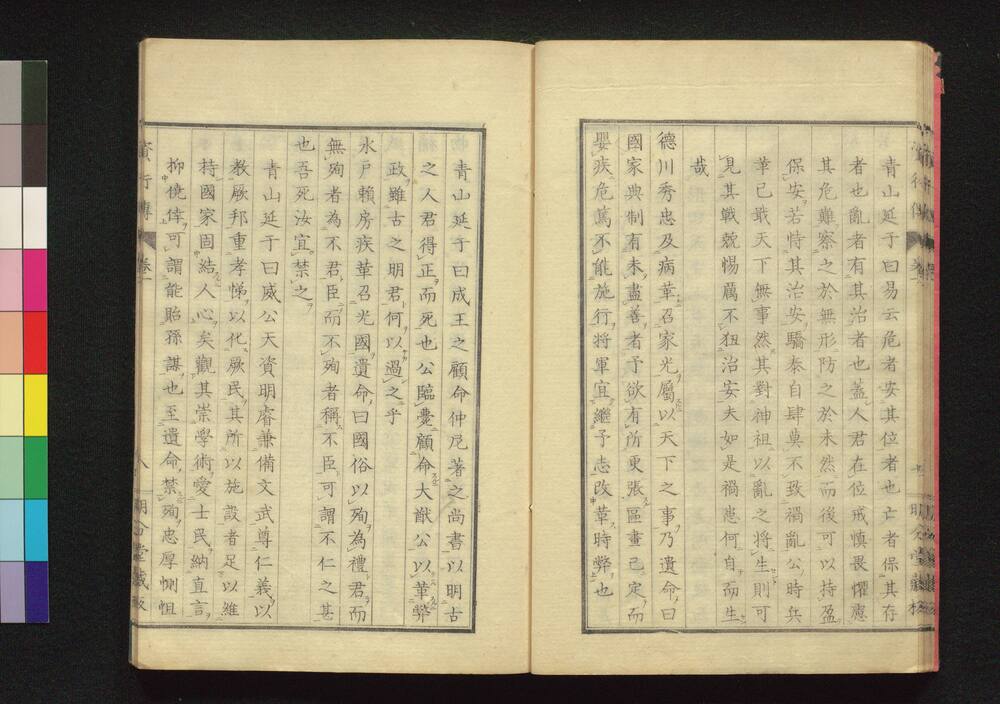 青山延于曰易云危者安其位者也亡者保其存
者也亂者有其治者也蓋人君在位戒慎畏懼慮
其危難察之於無形防之於未然而後可以持盈
保安若恃其治安驕泰自肆莫不致禍亂公時兵
革已戢天下無事然其對神祖以亂之將生則可
見其戰兢惕厲不狃治安夫如是禍患何自而生
哉
德川秀忠及病革召家光屬以天下之事乃遺命曰
國家典制有未盡善者予欲有所更張區畫已定而
嬰疾危篤不能施行將軍宜繼予志改革時弊也
青山延于曰成王之顧命仲尼著之尚書以明古
之人君得正而死也公臨薨顧命大猷公以革弊
政雖古之明君何以過之乎
水戶賴房疾革召光國遺命曰國俗以殉為禮君而
無殉者為不君臣而不殉者稱不臣可謂不仁之甚
也吾死汝宜禁之
青山延于曰威公天資明睿兼備文武尊仁義以
教厥邦重孝悌以化厥民其所以施設者足以維
持國家固結人心矣觀其崇學術愛士民納直言
抑僥倖可謂能貽孫謀也至遺命禁殉忠厚惻怛
八
明倫堂藏板